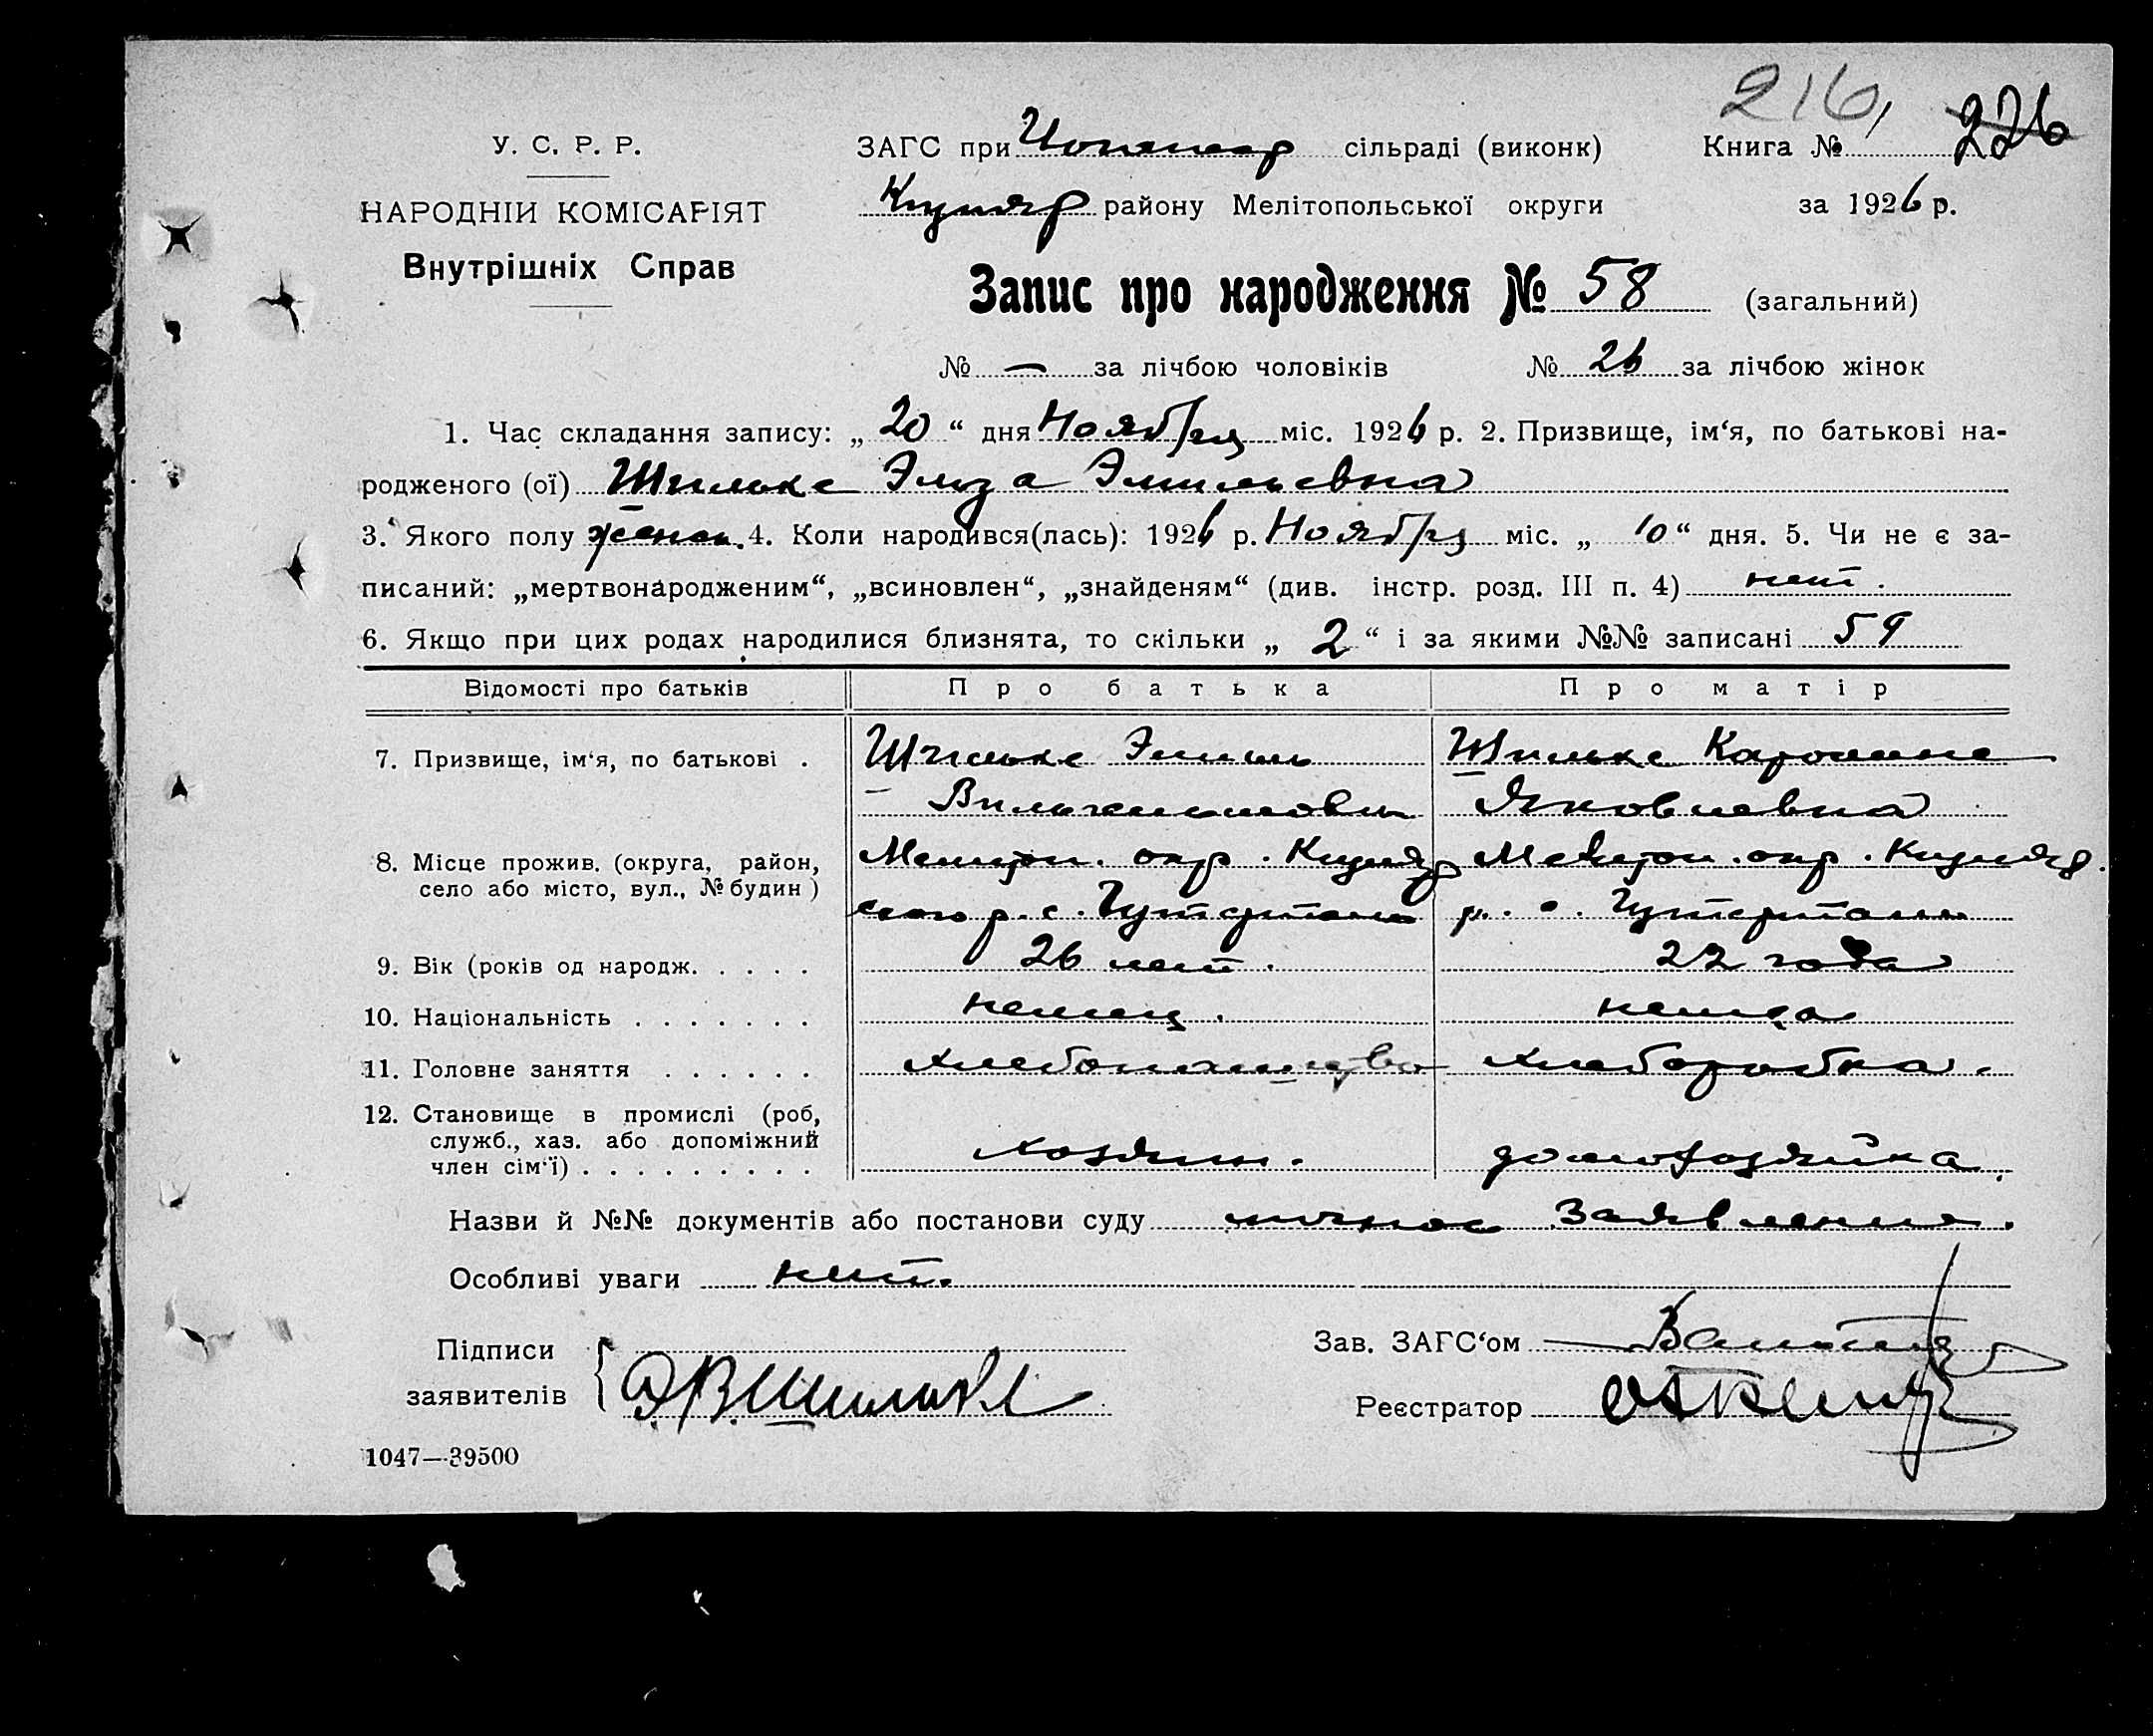 216, 226
У. С. Р. Р.
ЗАГС при сільраді (виконк)
Книга №
НАРОДНІЙ КОМІСАРІЯТ
району Мелітопольської округи
за 1926 р.
Внутрішніх Справ
Запис про народження № 58 (загальний)
№ — за лічбою чоловіків № 26 за лічбою жінок
1. Час складання запису: „ 20 “ дня Ноября міс. 1926 р. 2. Призвище, ім‘я, по батькові на-
родженого (ої) Шильке Элиза Эмильевна
3. Якого полу женск. 4. Коли народився(лась): 1926 р. Ноября міс. „ 10 “ дня. 5. Чи не є за-
писаний: „мертвонародженим“, „всиновлен“, „знайденям“ (див. інстр. розд. III п. 4) нет.
6. Якщо при цих родах народилися близнята, то скільки „ 2 “ і за якими №№ записані 59
Відомості про батьків Про батька Про матір
7. Призвище, ім‘я, по батькові . Шильке Эмиль Шильке Каролине
Вильгельмович Яковлевна
8. Місце прожив. (округа, район, Мелитоп. окр. Мелитоп. окр.
село або місто, вул., № будин ) ского р. с. Гутерталь р. с. Гутерталь
9. Вік (років од народж. . . . . 26 лет. 22 года
10. Національність . . . . . . . немец. немка
11. Головне заняття . . . . . . хлебопашество хлеборобка.
12. Становище в промислі (роб,
служб., хаз. або допоміжний
член сім‘ї) . . . . . . . . . хозяин. домохозяйка.
Назви й №№ документів або постанови суду личное Заявление.
Особливі уваги нет.
Підписи
заявителів Э.В.Шильке
Зав. ЗАГС‘ом
Реєстратор
1047—39500